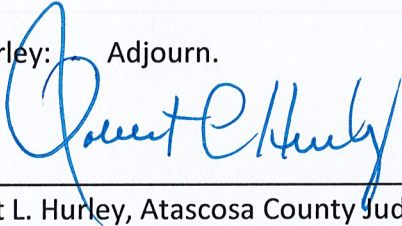 rley: Adjourn.
Robert L Hurley
t L. Hurley, Atascosa County Jud